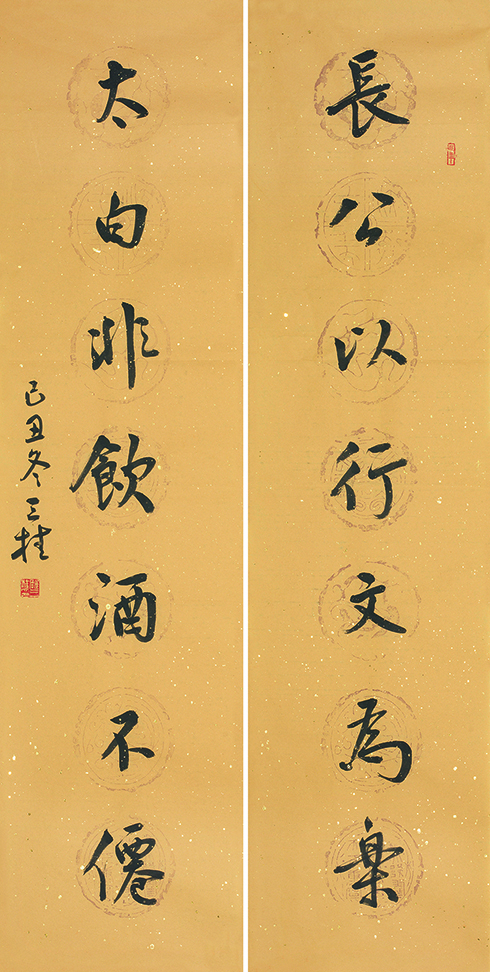 長公以行文為樂
太白非飲酒不僊
己丑冬三桂